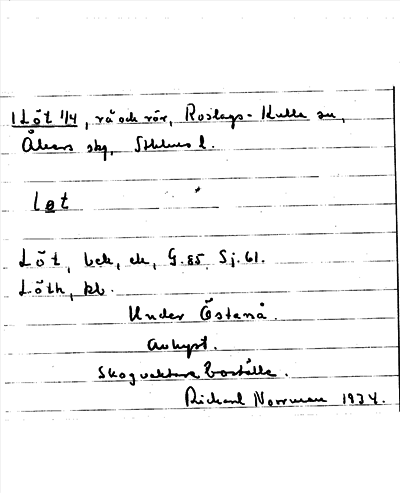 1 Löt 1/4, rå och rör, Roslags-Kulla sn,
Åkers skg, Sthlms l.
løt
Löt, bek, ek, G.85, Sj.61.
Löth, kb.
Under Östanå.
Avhyst.
Skogvaktareboställe.
Rickard Norrman 1934.